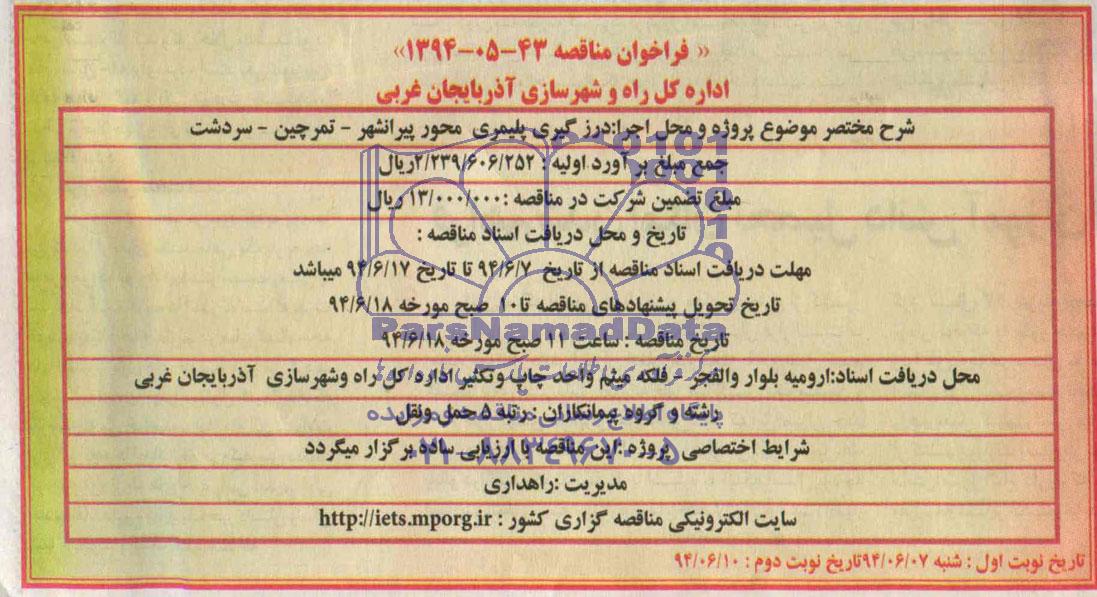 « فراخوان مناقصه ۴۳-۰۵-۱۳۹۴»
اداره کل راه و شهرسازی آذربایجان غربی
شرح مختصر موضوع پروژه و محل اجرا:درز گیری پلیمری محور پیرانشهر - تمرچین - سردشت
جمع مبلغ بر آورد اولیه : ۲/۲۳۹/۶۰۶/۲۵۲ریال
مبلغ تضمین شرکت در مناقصه :۱۳/۰۰۰/۰۰۰ ریال
تاریخ و محل دریافت اسناد مناقصه :
مهلت دریافت اسناد مناقصه از تاریخ ۹۴/۶/۷ تا تاریخ ۹۴/۶/۱۷ میباشد
تاریخ تحویل پیشنهادهای مناقصه تا۱۰ صبح مورخه ۹۴/۶/۱۸
ParsNamadData
تاریخ مناقصه : ساعت ۱۱ صبح مورخه ۹۴/۶/۱۸
محل دریافت اسناد:ارومیه بلوار والفجر - فلکه میثم واحد چاپ وتکثیر اداره کل راه وشهرسازی آذربایجان غربی
رشته و گروه پیمانکاران : رتبه ۵ حمل ونقل
شرایط اختصاصی پروژه :این مناقصه با ارزیابی ساده برگزار میگردد
۰۲۱-۸۸۳۴۹۶۷۰-۵
مدیریت :راهداری
سایت الکترونیکی مناقصه گزاری کشور : http://iets.mporg.ir
تاریخ نوبت اول : شنبه ۹۴/۰۶/۰۷تاریخ نوبت دوم : ۹۴/۰۶/۱۰